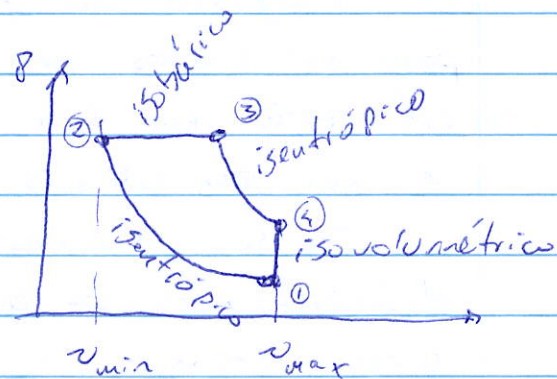 isobárico
②
③
isentrópico
④
isovolumétrico
isentrópico
①
v min
v max